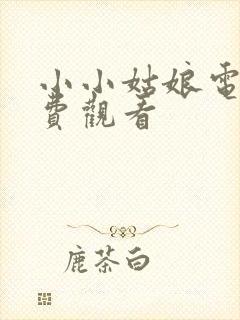 小小姑娘電
費觀看
鹿茶白